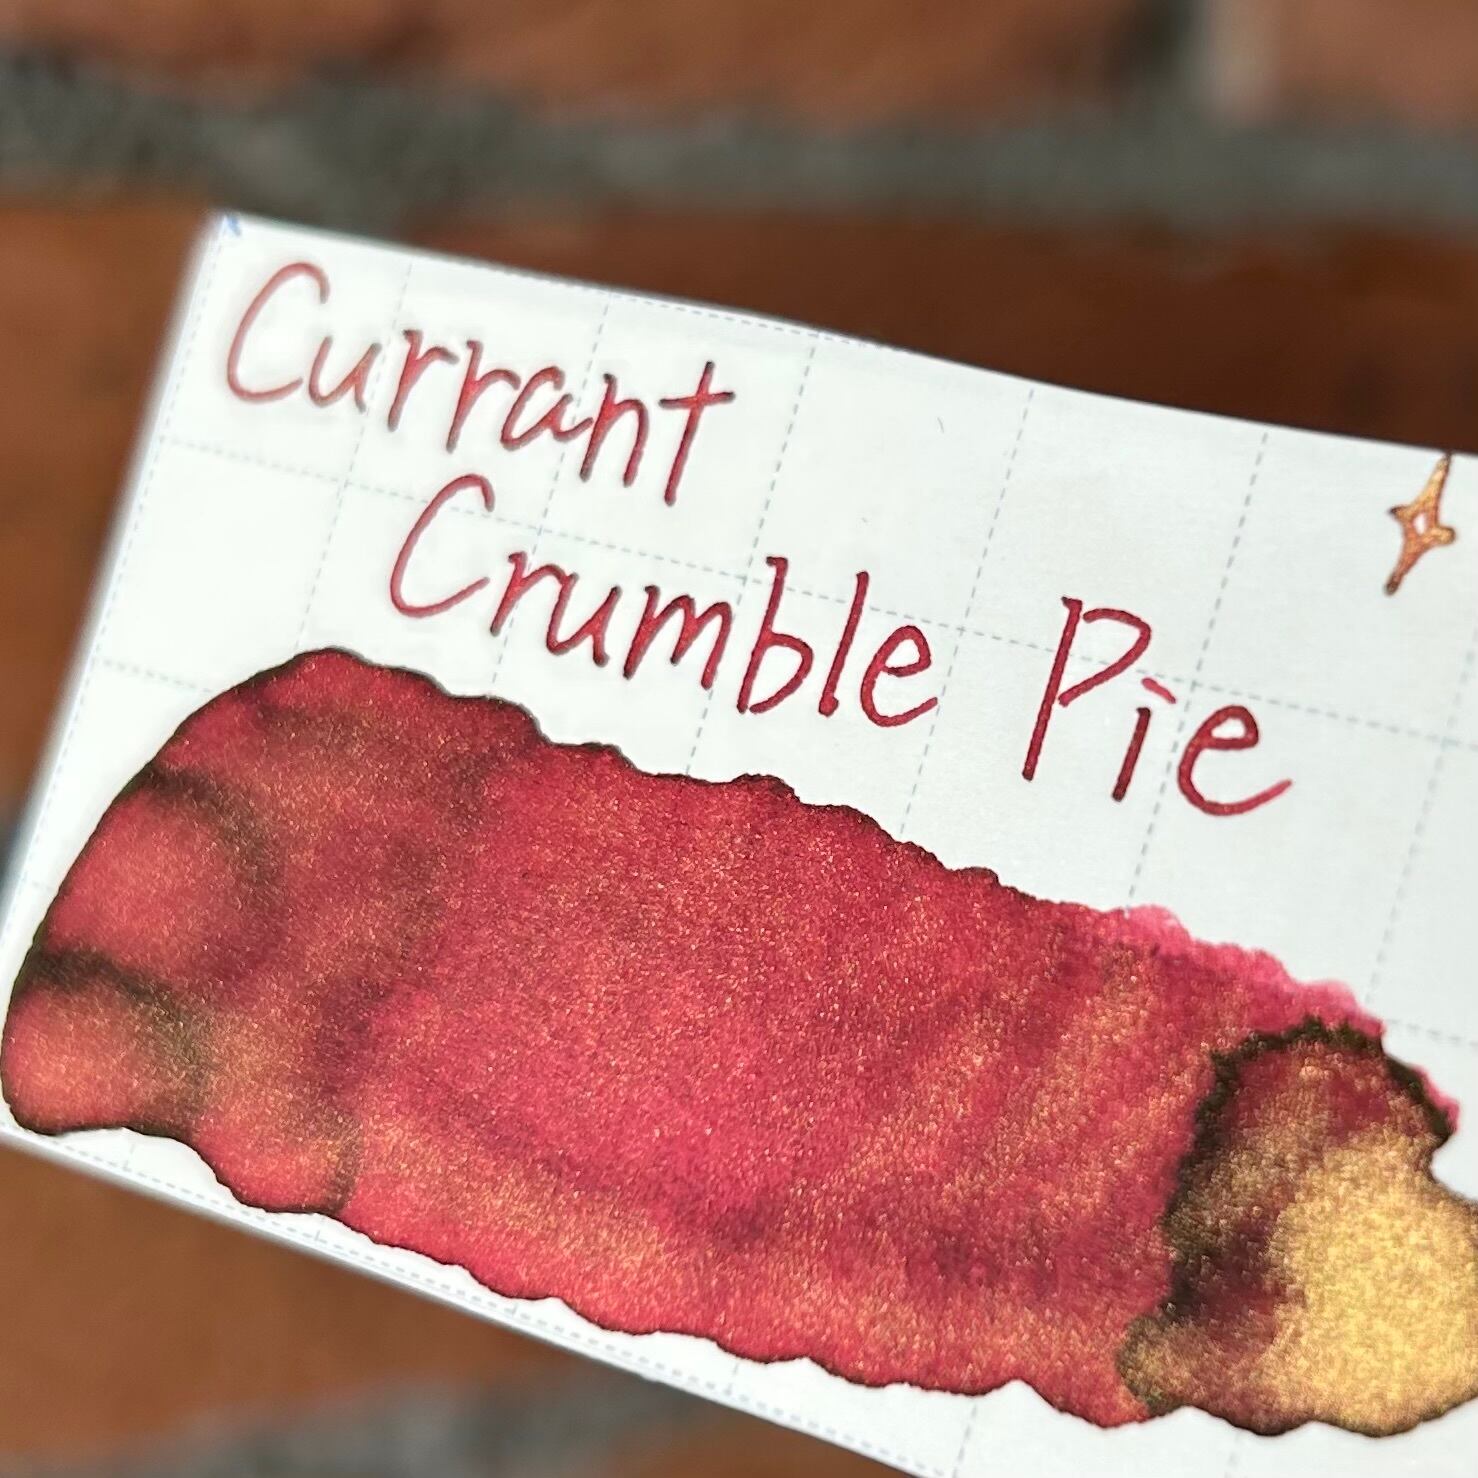 Currant
Crumble Pie